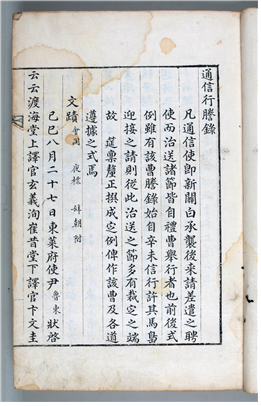 通信行謄錄
凡通信使卽新關白承襲後來請差遣之聘
使而治送諸節皆自禮曹舉行者也前後式
例雖有該曹謄錄始自辛未信行許其馬島
迎接之請則從此治送之節多有裁定之端
故 還票釐正撰成定例俾作該曹及各道
遵據之式焉
文蹟
己巳八月二十七日東萊府使尹魯東狀啓
云云渡海堂上譯官玄義洵崔昔堂下譯官卞文圭